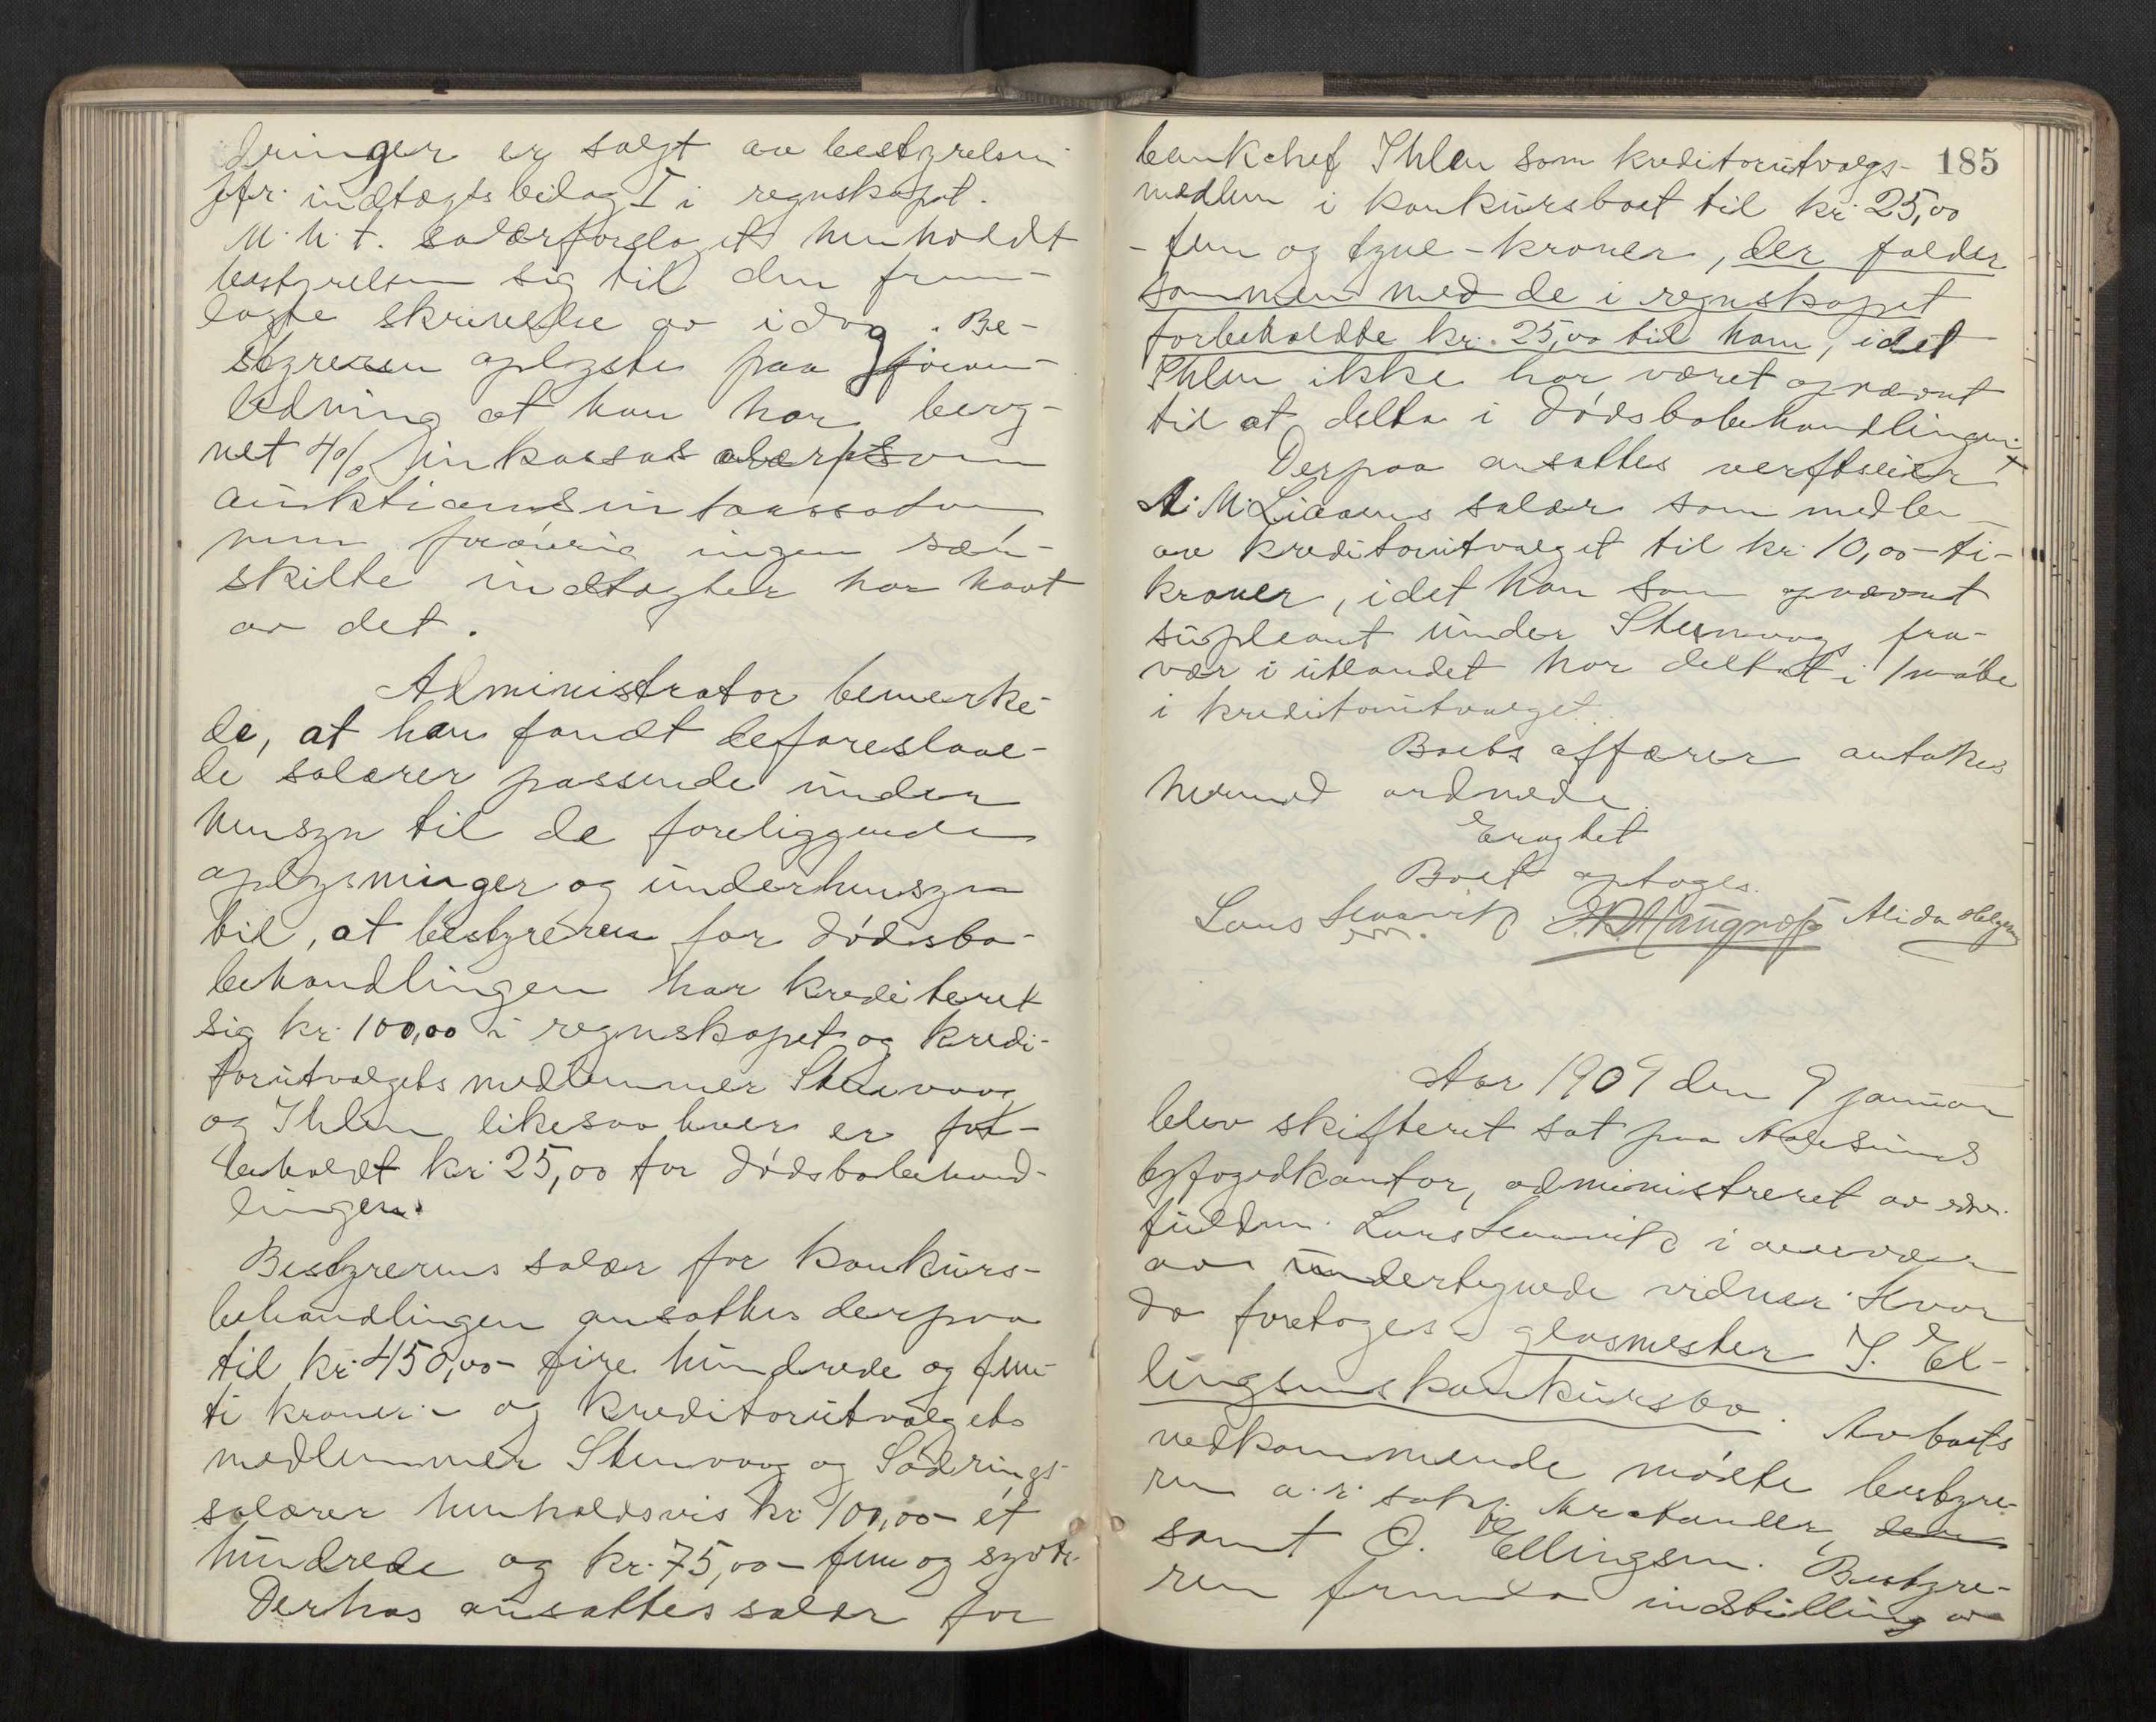 dringer er solgt av bestyrelsen
jfr. indtægtsbilag I i regnskapet.
M.h.t. salærforslaget henholdt
bestyrelsen sig til den frem-
lagte skrivelse av idag. Be-
styreren oplyste paa foran-
ledning at han har bereg-
net 4% inkassosalær som
auktionsinkassator
men forøvrig ingen sær-
skilte indtægter har havt
av det.
Administrator bemerke-
de, at han fandt de foreslaae-
de salærer passende under
hensyn til de foreliggende
oplysninger og under hensyn
til, at bestyreren for dødsbo-
behandlingen har krediteret
sig kr. 100,00 i regnskapet og kredi-
torutvalgets medlemmer Stenvaag
og Ihlen likesaa hver er for-
beholdt kr. 25,00 for dødsbobehand-
lingen.
Bestyrerens salær for konkurs-
behandlingen ansattes derpaa
til kr. 450,00 - fire hundrede og fem-
ti kroner - og kreditorutvalgets
medlemmer Stenvaag og Sødrings
salærer henholdsvis kr. 100,00 - et
hundrede og kr. 75,00 - fem og sytti.
Derhos ansattes salær for
185
bankchef Ihlen som kreditorutvalgs-
medlem i konkursboet til kr. 25,00
- fem og tyve - kroner, der falder
sammen med de i regnskapet
forbeholdte kr. 25,00 til ham, idet
Ihlen ikke har været opnævnt
til at delta i dødsbobehandlingen.
Derpaa ansattes verftseier
A. M. Liaaens salær som medlem
av kreditorutvalget til kr. 10,00 - ti -
kroner, idet han som opnævnt
supleant under Stenvaags fra-
vær i utlandet har deltat i 1 møte
i kreditorutvalget.
Boets affærer antokes
hermed ordnede.
Eragtet
Boet optoges.
Lars Alida Helgesen
Aar 1909 den 9 januar
blev skifteret sat paa Aalesunds
byfogedkontor, administreret av edsv.
fuldm. Lars i overvær
av undertegnede vidner. Hvor
da foretoges glasmester J. El-
lingsens konkursbo. Av boets
vedkommende møtte bestyre-
ren o.r. sakf. den
samt O. Ellingsen. Bestyre-
ren fremla indstilling av